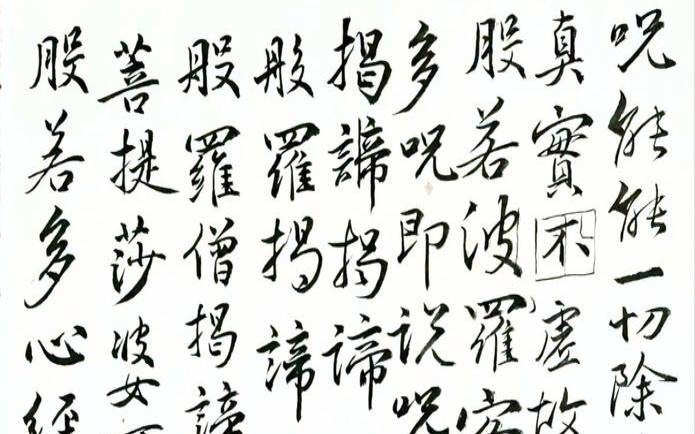 呪能能一切除
真實不虛故
般若波羅
多呪即説呪
揭諦揭諦
般羅揭諦
般羅僧揭諦
菩提莎婆
般若多心經